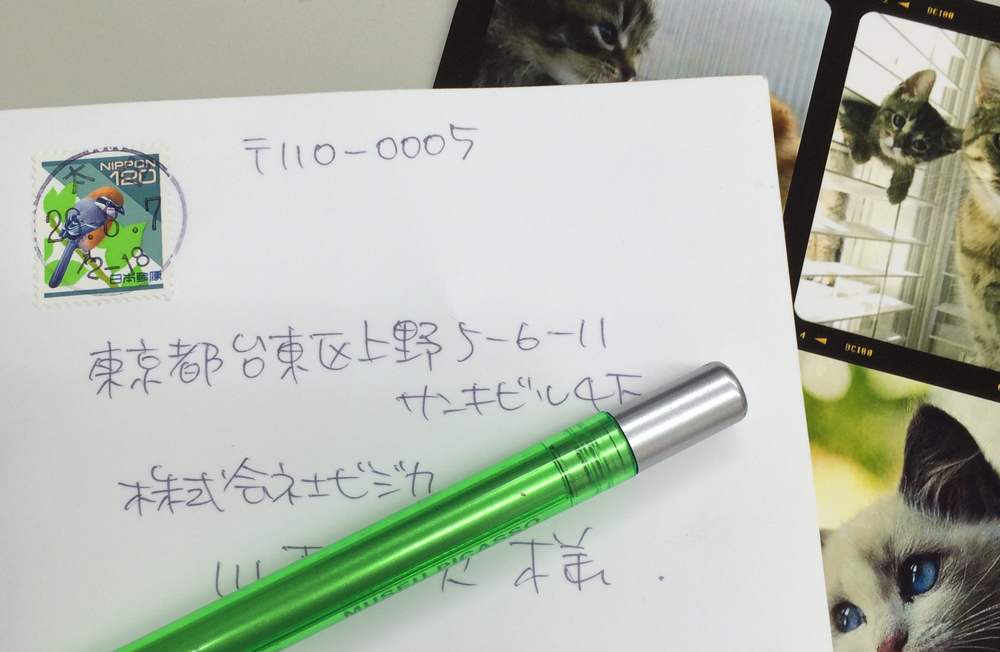 〒110-0005
NIPPON
120
日本郵便
東京都台東区上野5-6-11
サンキビル4F
株式会社ビジカ
様
MUSEU PICASSO
BC100
4 BC100